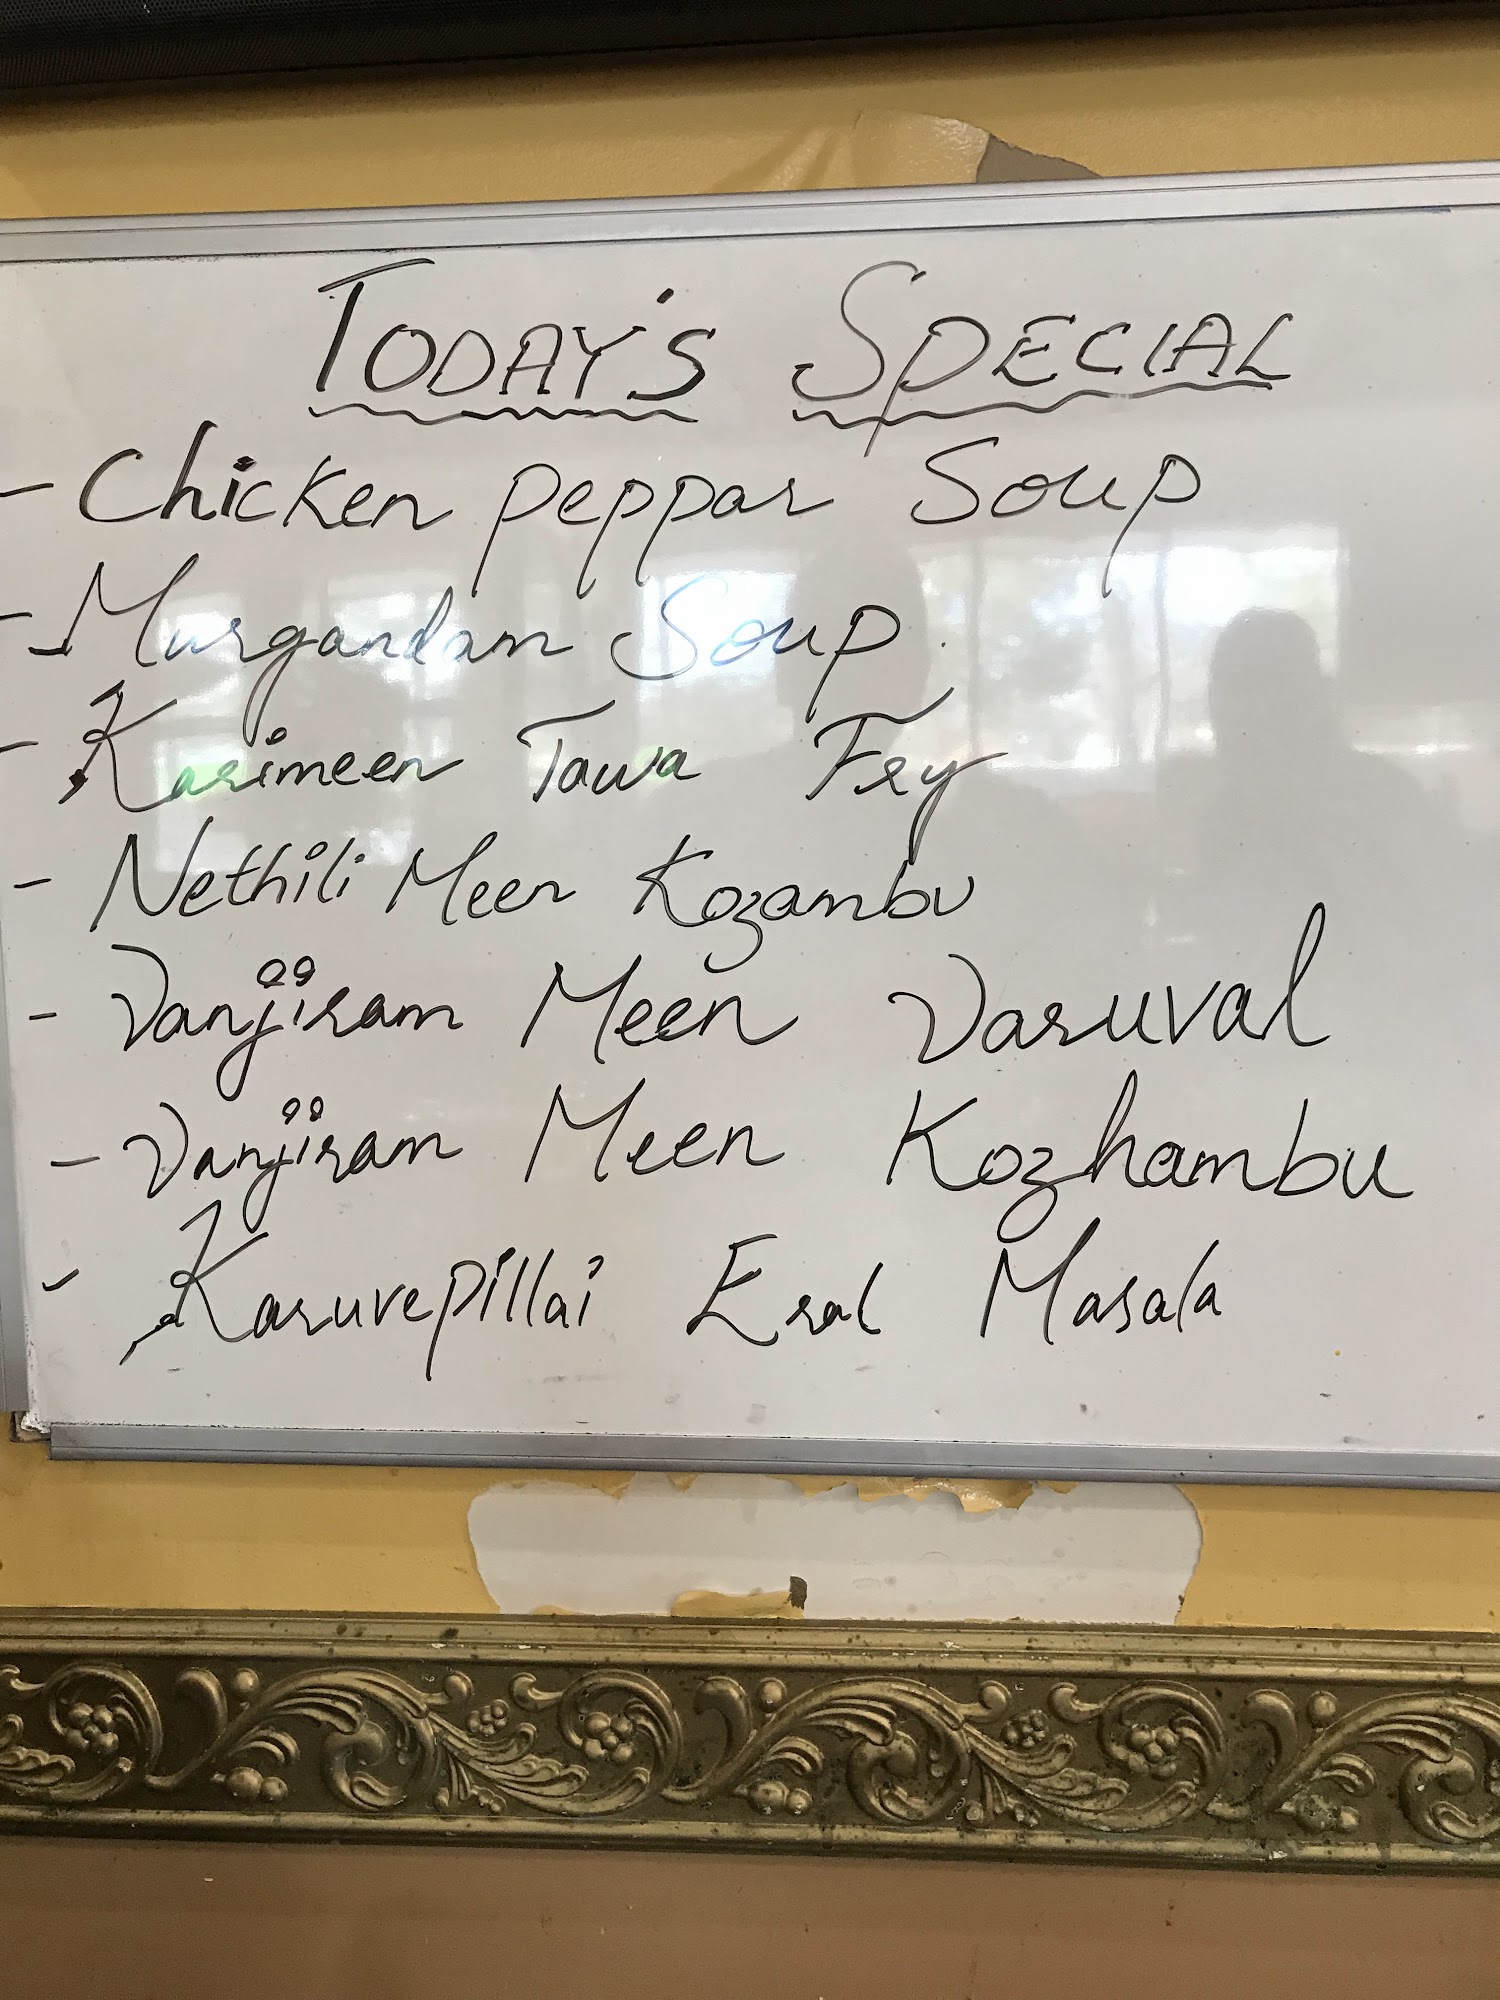 TODAY'S SPECIAL
- Chicken peppar Soup
- Murgandam Soup
- Karimeen Tawa Fry
- Nethili Meen Kozambu
- Vanjiram Meen Varuval
- Vanjiram Meen Kozhambu
- Karuvepillai Eral Masala